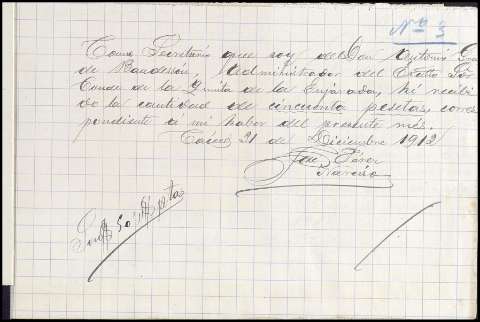 Nº 3
Como Secretario que soy del Don Antonio
de Administrador del Excmo Sor
Conde de la Quinta de la Enjarada, hé recibi
do la cantidad de cincuenta pesetas, corres
pondiente á mi haber del presente més.
Cáceres 31 de Diciembre 1912
José Pérez
Narciso
Son 50 ptas